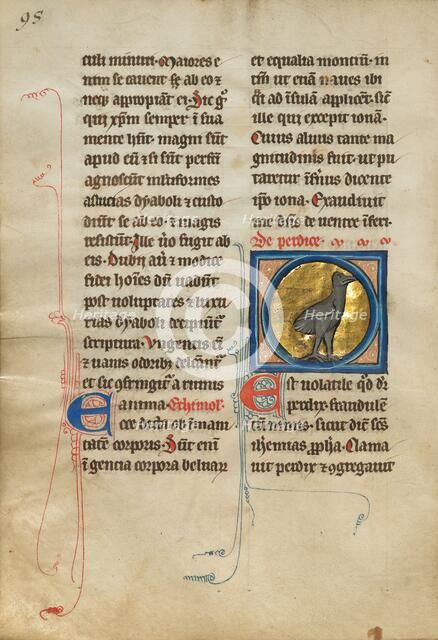 98
culi minuti. Maiores e
nim se cauent se ab eo &
neq; appropiant ei. Sic g°
qui xpm semper in sua
mente hnt. magni sunt
apud eum & si sunt persti
agnoscunt multiformes
astucias dyaboli & custo
diunt se ab eo. & magis
resistunt. Ille u'o fugit ab
eis. Dubii aut & modice
fidei hoies dum uadunt
post uoluptates & luxu
rias dyaboli decipiunt
scriptura. Unguentis
& uariis odoribus delectant
et sic confringitur a ruinis
anima. Ethimol
Cete dicta ob inmani
tatem corporis. Sunt enim
ingencia corpora beluar
et equalia moncium. in
tm ut etiam naues ibi
qt ad insulam applicent. sic
ille qui excepit ionam.
Cuius aluus tante ma
gnitudinis fuit. ut pu
taretur infernus dicente
ipso iona. Exaudiuit
me dns de uentre inferi.
De perdice.
Est uolatile qd dr
perdix fraudulen
tum nimis. sicut dicit scs
iheremias propha. Clama
uit perdix & congregauit
Heritage
Heritage
Heritage
Heritage
Heritage